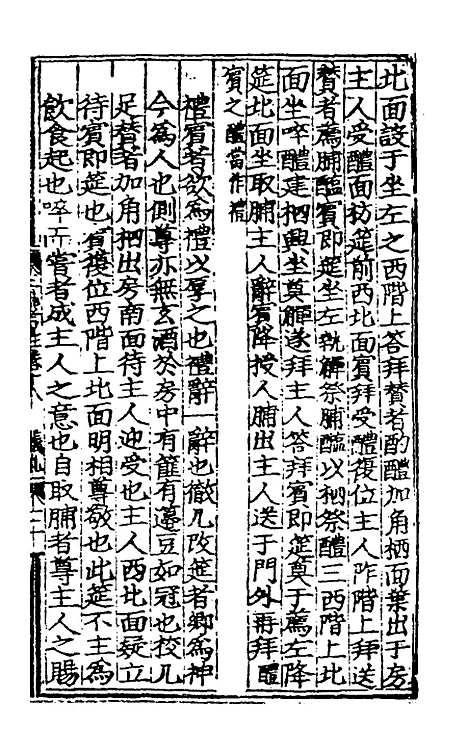 北面設于坐左之西階上答拜賛者酌醴加角栖面葉出于房
主人受醴面枋筵前西北面賓拜受醴復位主人阼階上拜送
賛者薦脯醢賓即筵坐左執觶祭脯醢以柶祭醴三西階上北
面坐啐醴建柶興坐奠觶遂拜主人答拜賓即筵奠于薦左降
筵北面坐取脯主人辭賓降授人脯出主人送于門外再拜醴
賓之醴當作禮
禮賓者欲為禮以厚之也禮辭一辭也徹几改筵者鄉為神
今為人也側尊亦無玄酒於房中有篚有籩豆如冠也校几
足賛者加角柶出房南面待主人迎受也主人西北面疑立
待賓即筵也賓復位西階上北面明相尊敬也此筵不主為
飲食起也啐而嘗者成主人之意也自取脯者尊主人之賜